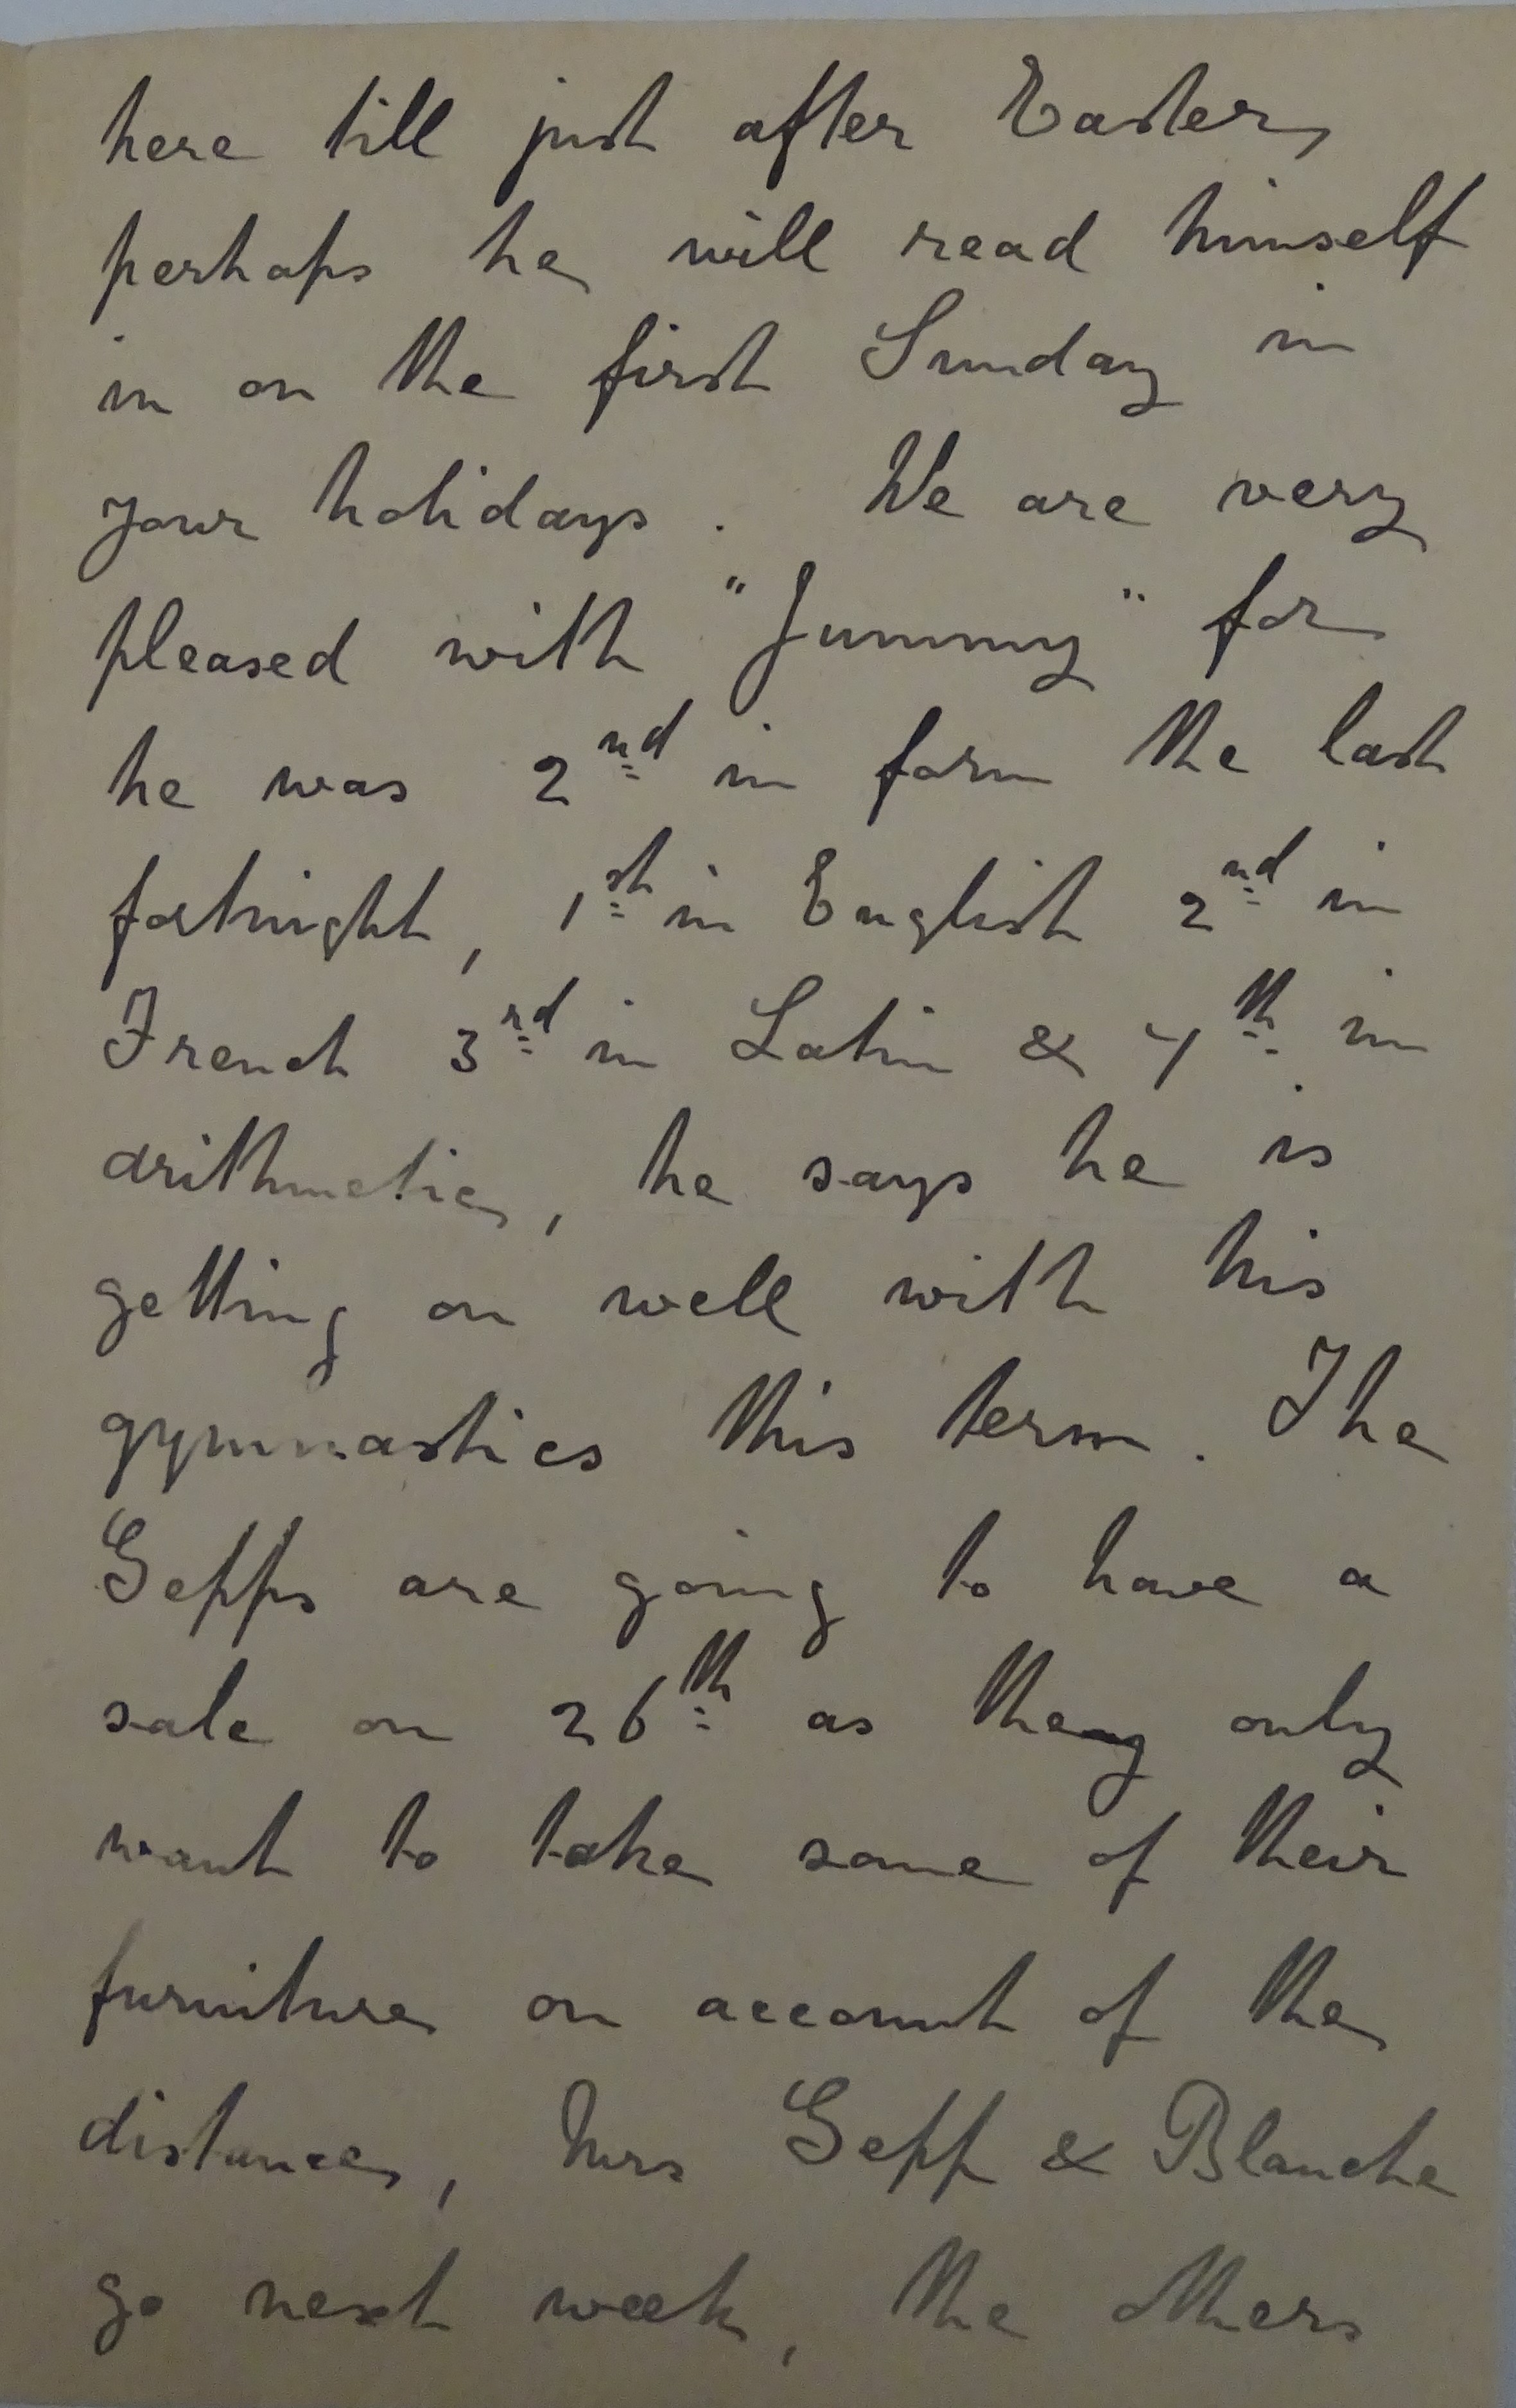 here till just after Easter,
perhaps he will read himself
in on the first Sunday in
your holidays. We are very
pleased with "Jummy" for
he was 2nd in form the last
fortnight, 1st in English 2nd in
French 3rd in Latin & 4th in
arithmetic, he says he is
getting on well with his
gymnastics this term. The
Gepps are going to have a
sale on 26th as they only
want to take some of their
furniture on account of the
distance, Mrs Gepp & Blanche
go next week, the others